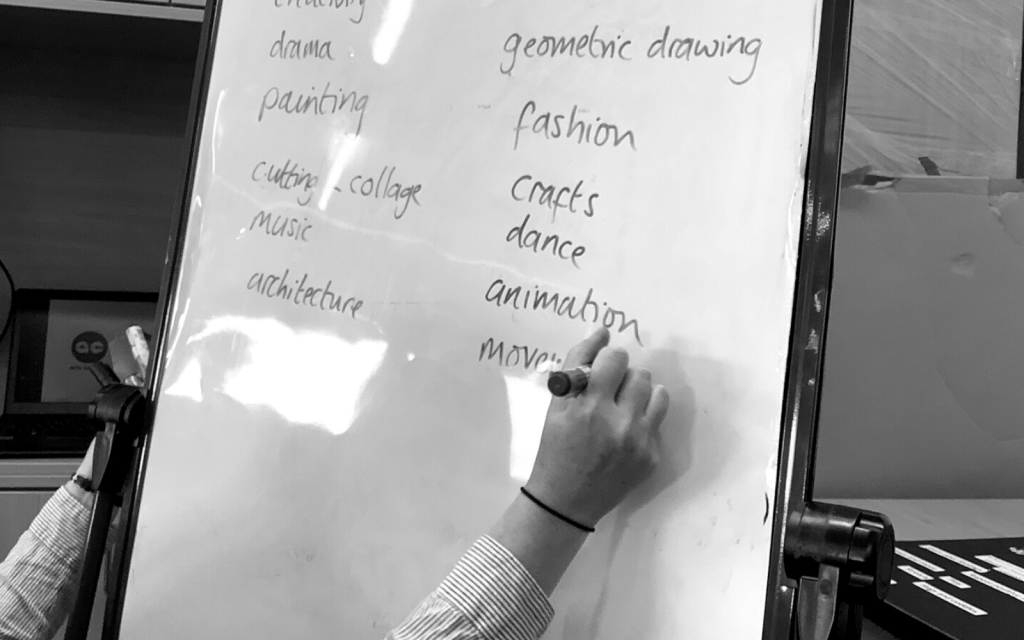 drama
painting
cutting - collage
music
architecture
geometric drawing
fashion
crafts
dance
animation